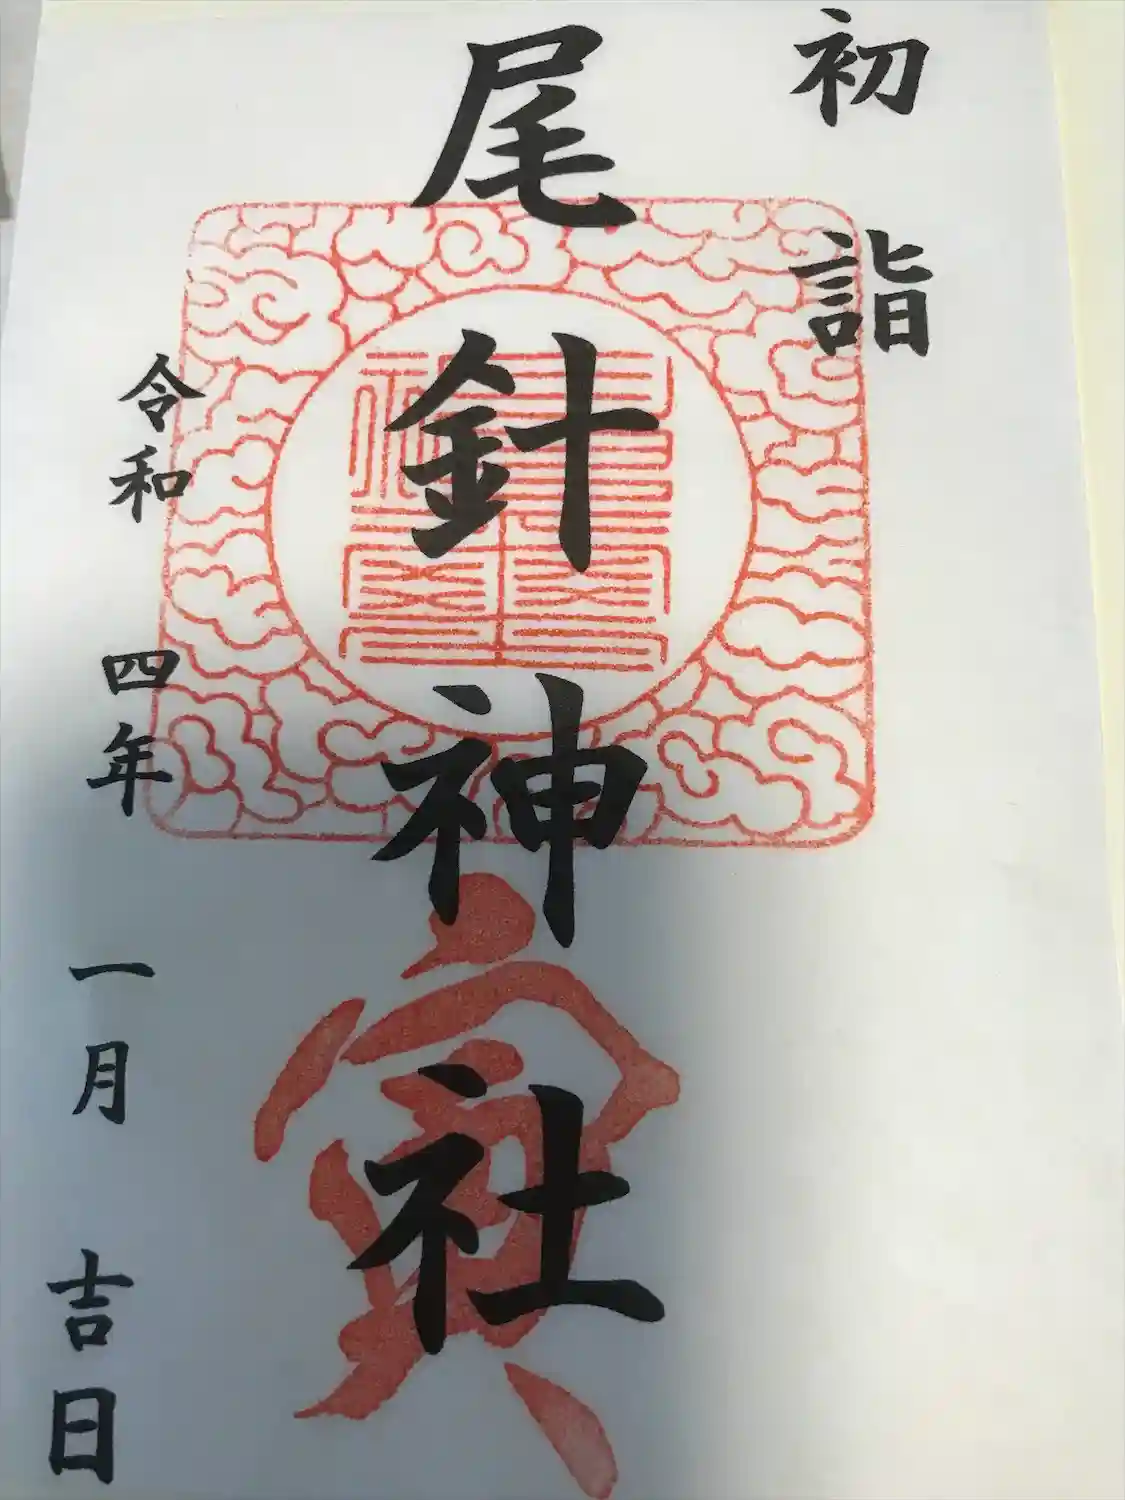 初詣
尾針神社
寅
令和四年一月吉日